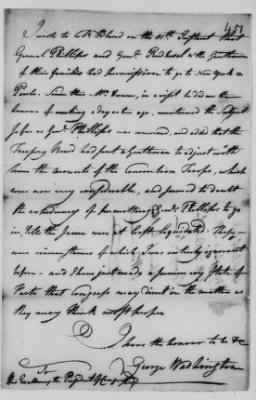 451
I wrote to Col. Bland on the 10th Instant that
General Phillips and Genl. Redhesel & the Gentlemen
of their families had permission to go to New York on
Parole. Since this Mr. in a visit he did me the
honour of making a day or two ago, mentioned the subject
so far as Genl. Phillips was concerned, and added that the
Treasury Board had sent a Gentleman to adjust with
him the accounts of the Convention Troops, which
were now very considerable, and seemed to doubt
the expediency of permitting Genl. Phillips to go
in, till the same were at least liquidated. These
were circumstances of which I was entirely ignorant
before — and I have just made a summary State of
Facts that Congress may direct in the matter as
they may think most proper.
I have the honour to be &c
George Washington
To
His Excellency the President of Congress